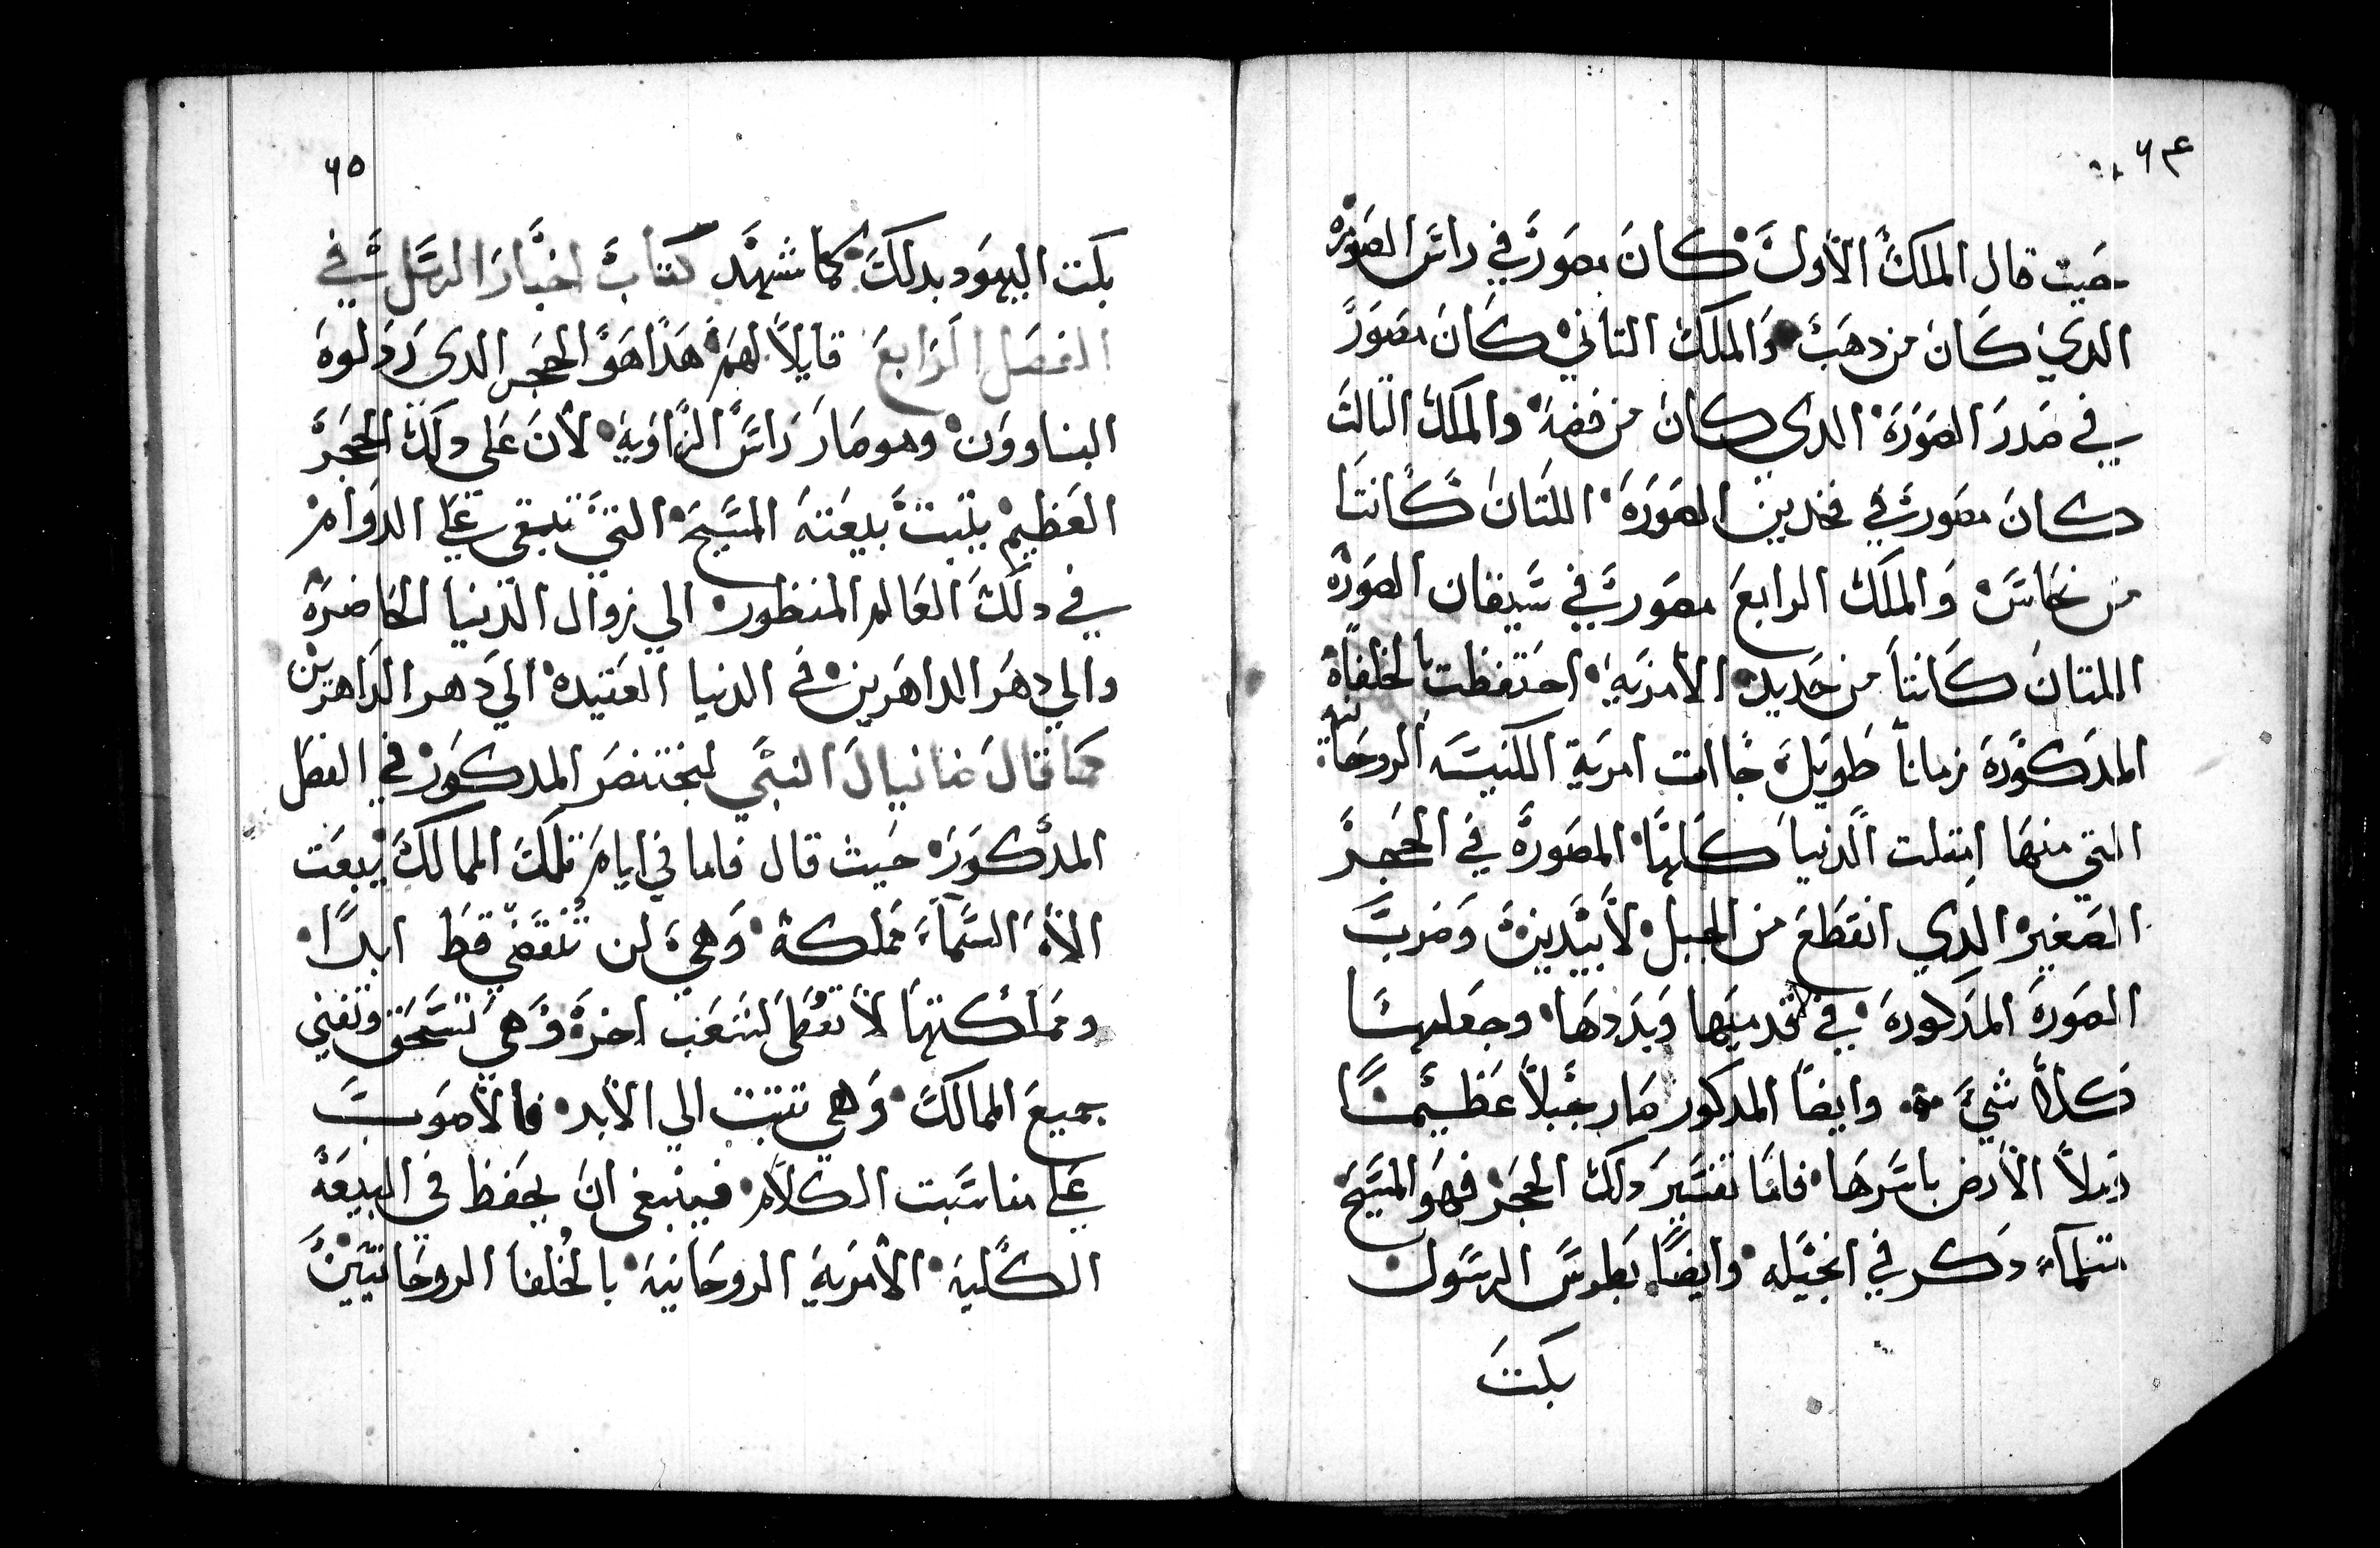 ٦٤
حيث قال الملك الأول كان مصور في راس الصورة
الدي كان من دهب والملك التاني كان مصور
في صدر الصورة الدي كان من فضة والملك التالت
كان مصور في فخدين الصورة اللتان كانتا
من نحاس والملك الرابع مصور في سيقان الصورة
اللتان كانتا من حديد الأمرية احتفظت بالخلفاة
المدكورة زماناً طويلة جاات امرية الكنيسة الروحانية
التي منها امتلت الدنيا كلها المصورة في الحجر
الصغير الدي انقطع من الجبل لأبيدين وضرب
الصورة المدكورة في قدميها وبددها وجعلها
كلا شي وايضاً المدكور صار جبلاً عظيماً
وملأ الأرض باسرها فاما تفسير دلك الحجر فهو المسيح
متلماء دكر في انجيله وايضاً بطرس الرسول
بكت
٦٥
بكت اليهود بدلك كما شهد كتاب اخبار الرسل في
الفصل الرابع قايلاً لهم هدا هو الحجر الدي ردلوه
البناوون وهو صار راس الزاوية لأن على دلك الحجر
العظيم يتبت بيعته المسيح التي تبقى على الدوام
في دلك العالم المنظور الي زوال الدنيا الحاضرة
والي دهر الداهرين في الدنيا العتيدة الي دهر الداهرين
كما قال دانيال النبي لبختنصر المدكور في الفصل
المدكور حيث قال فاما في ايام تلك الممالك يبعت
الأه السماء مملكة وهي لن تنقضي قط ابداً
ومملكتها لا تعطى لشعب اخر وهي تسحق وتفني
جميع الممالك وهي تتبت الي الأبد فالأصوب
على مناسبت الكلام فينبغي ان يحفظ في البيعة
الكلية الأمرية الروحانية بالخلفا الروحانيين